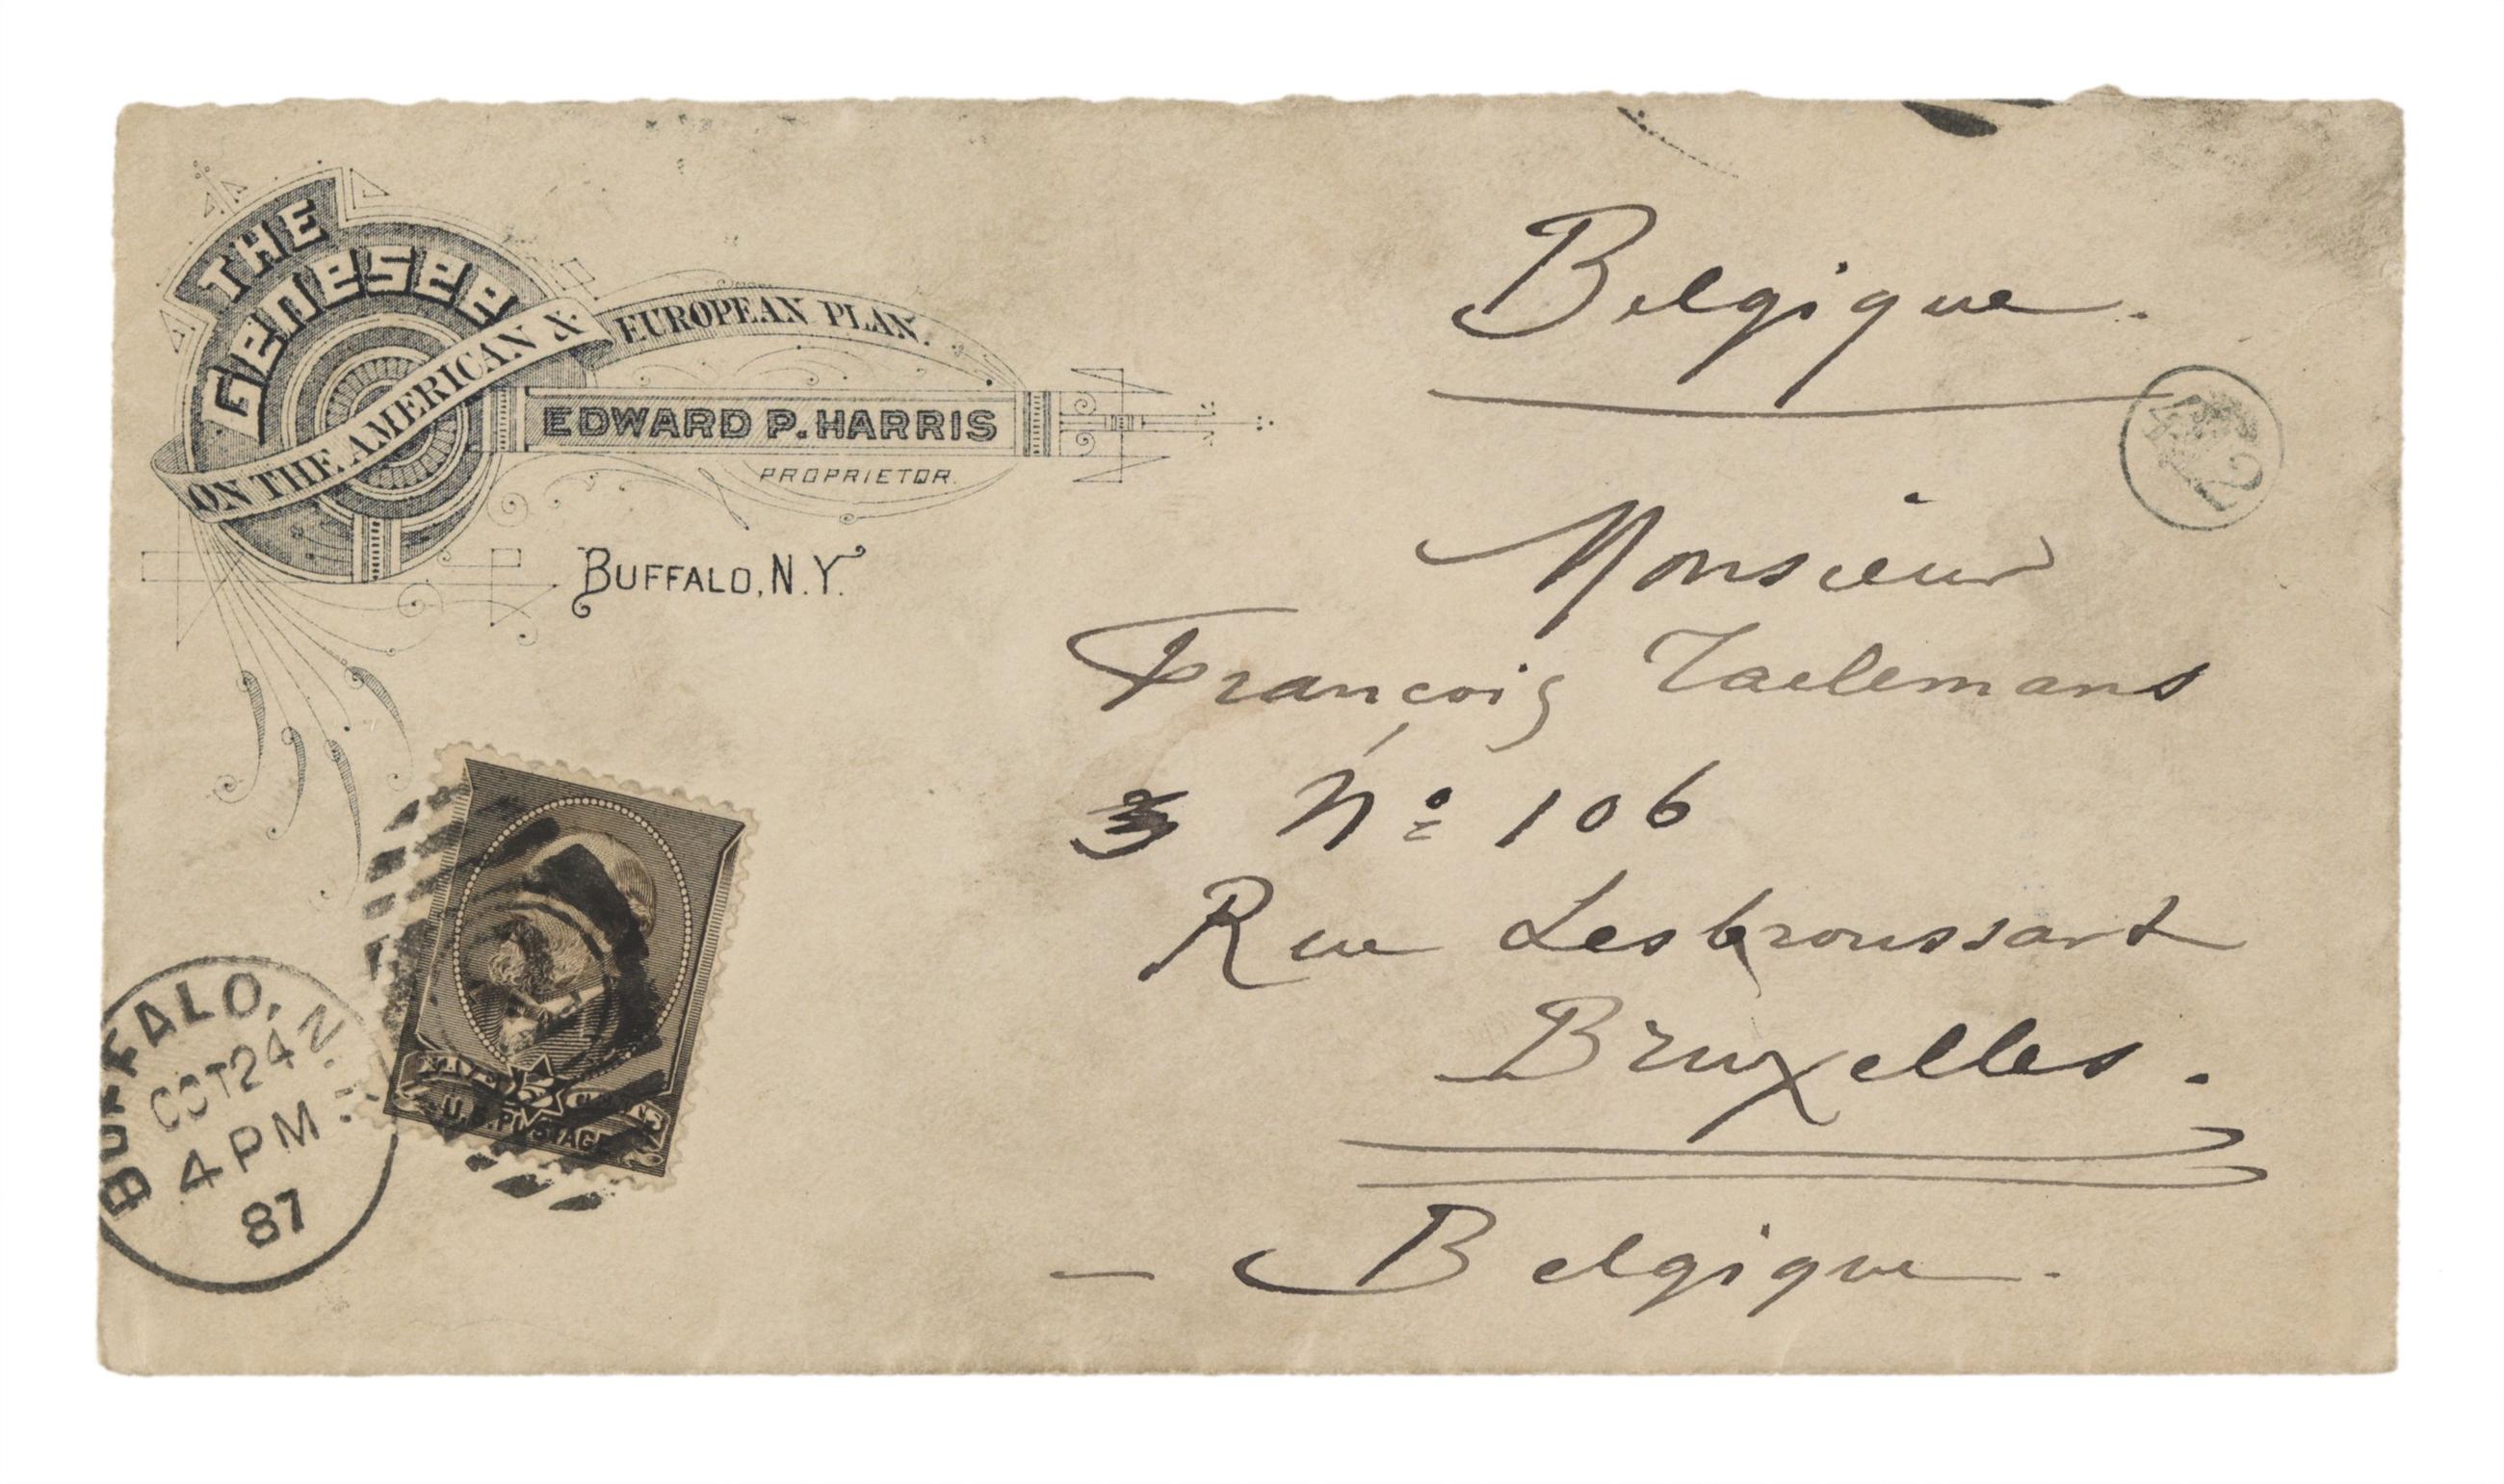 THE
GENESEE
ON THE AMERICAN & EUROPEAN PLAN.
EDWARD P. HARRIS
PROPRIETOR.
BUFFALO, N.Y.
Belgique.
Monsieur
François Taelemans
Nº 106
Rue Lesbroussart
Bruxelles.
— Belgique.
BUFFALO, N.
OCT 24
4 PM
87
5
U.S. POSTAGE
2